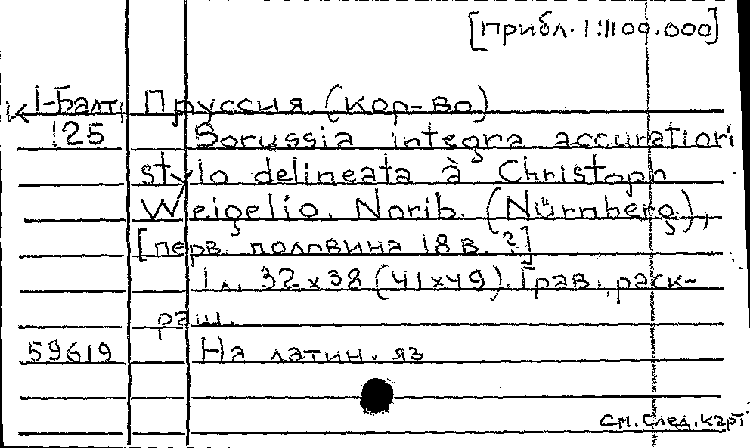 [Прибл. 1:1100.000]
К 1-Балт. Пруссия (кор-во)
125 Borussia integra accuratiori
stylo delineata à Christoph
Weigelio. Norib. (Nürnberg),
[перв. половина 18 в. ?]
1 л. 32x38 (41x49). Грав., раск-
раш.
59619 На латин. яз
См. след. карт